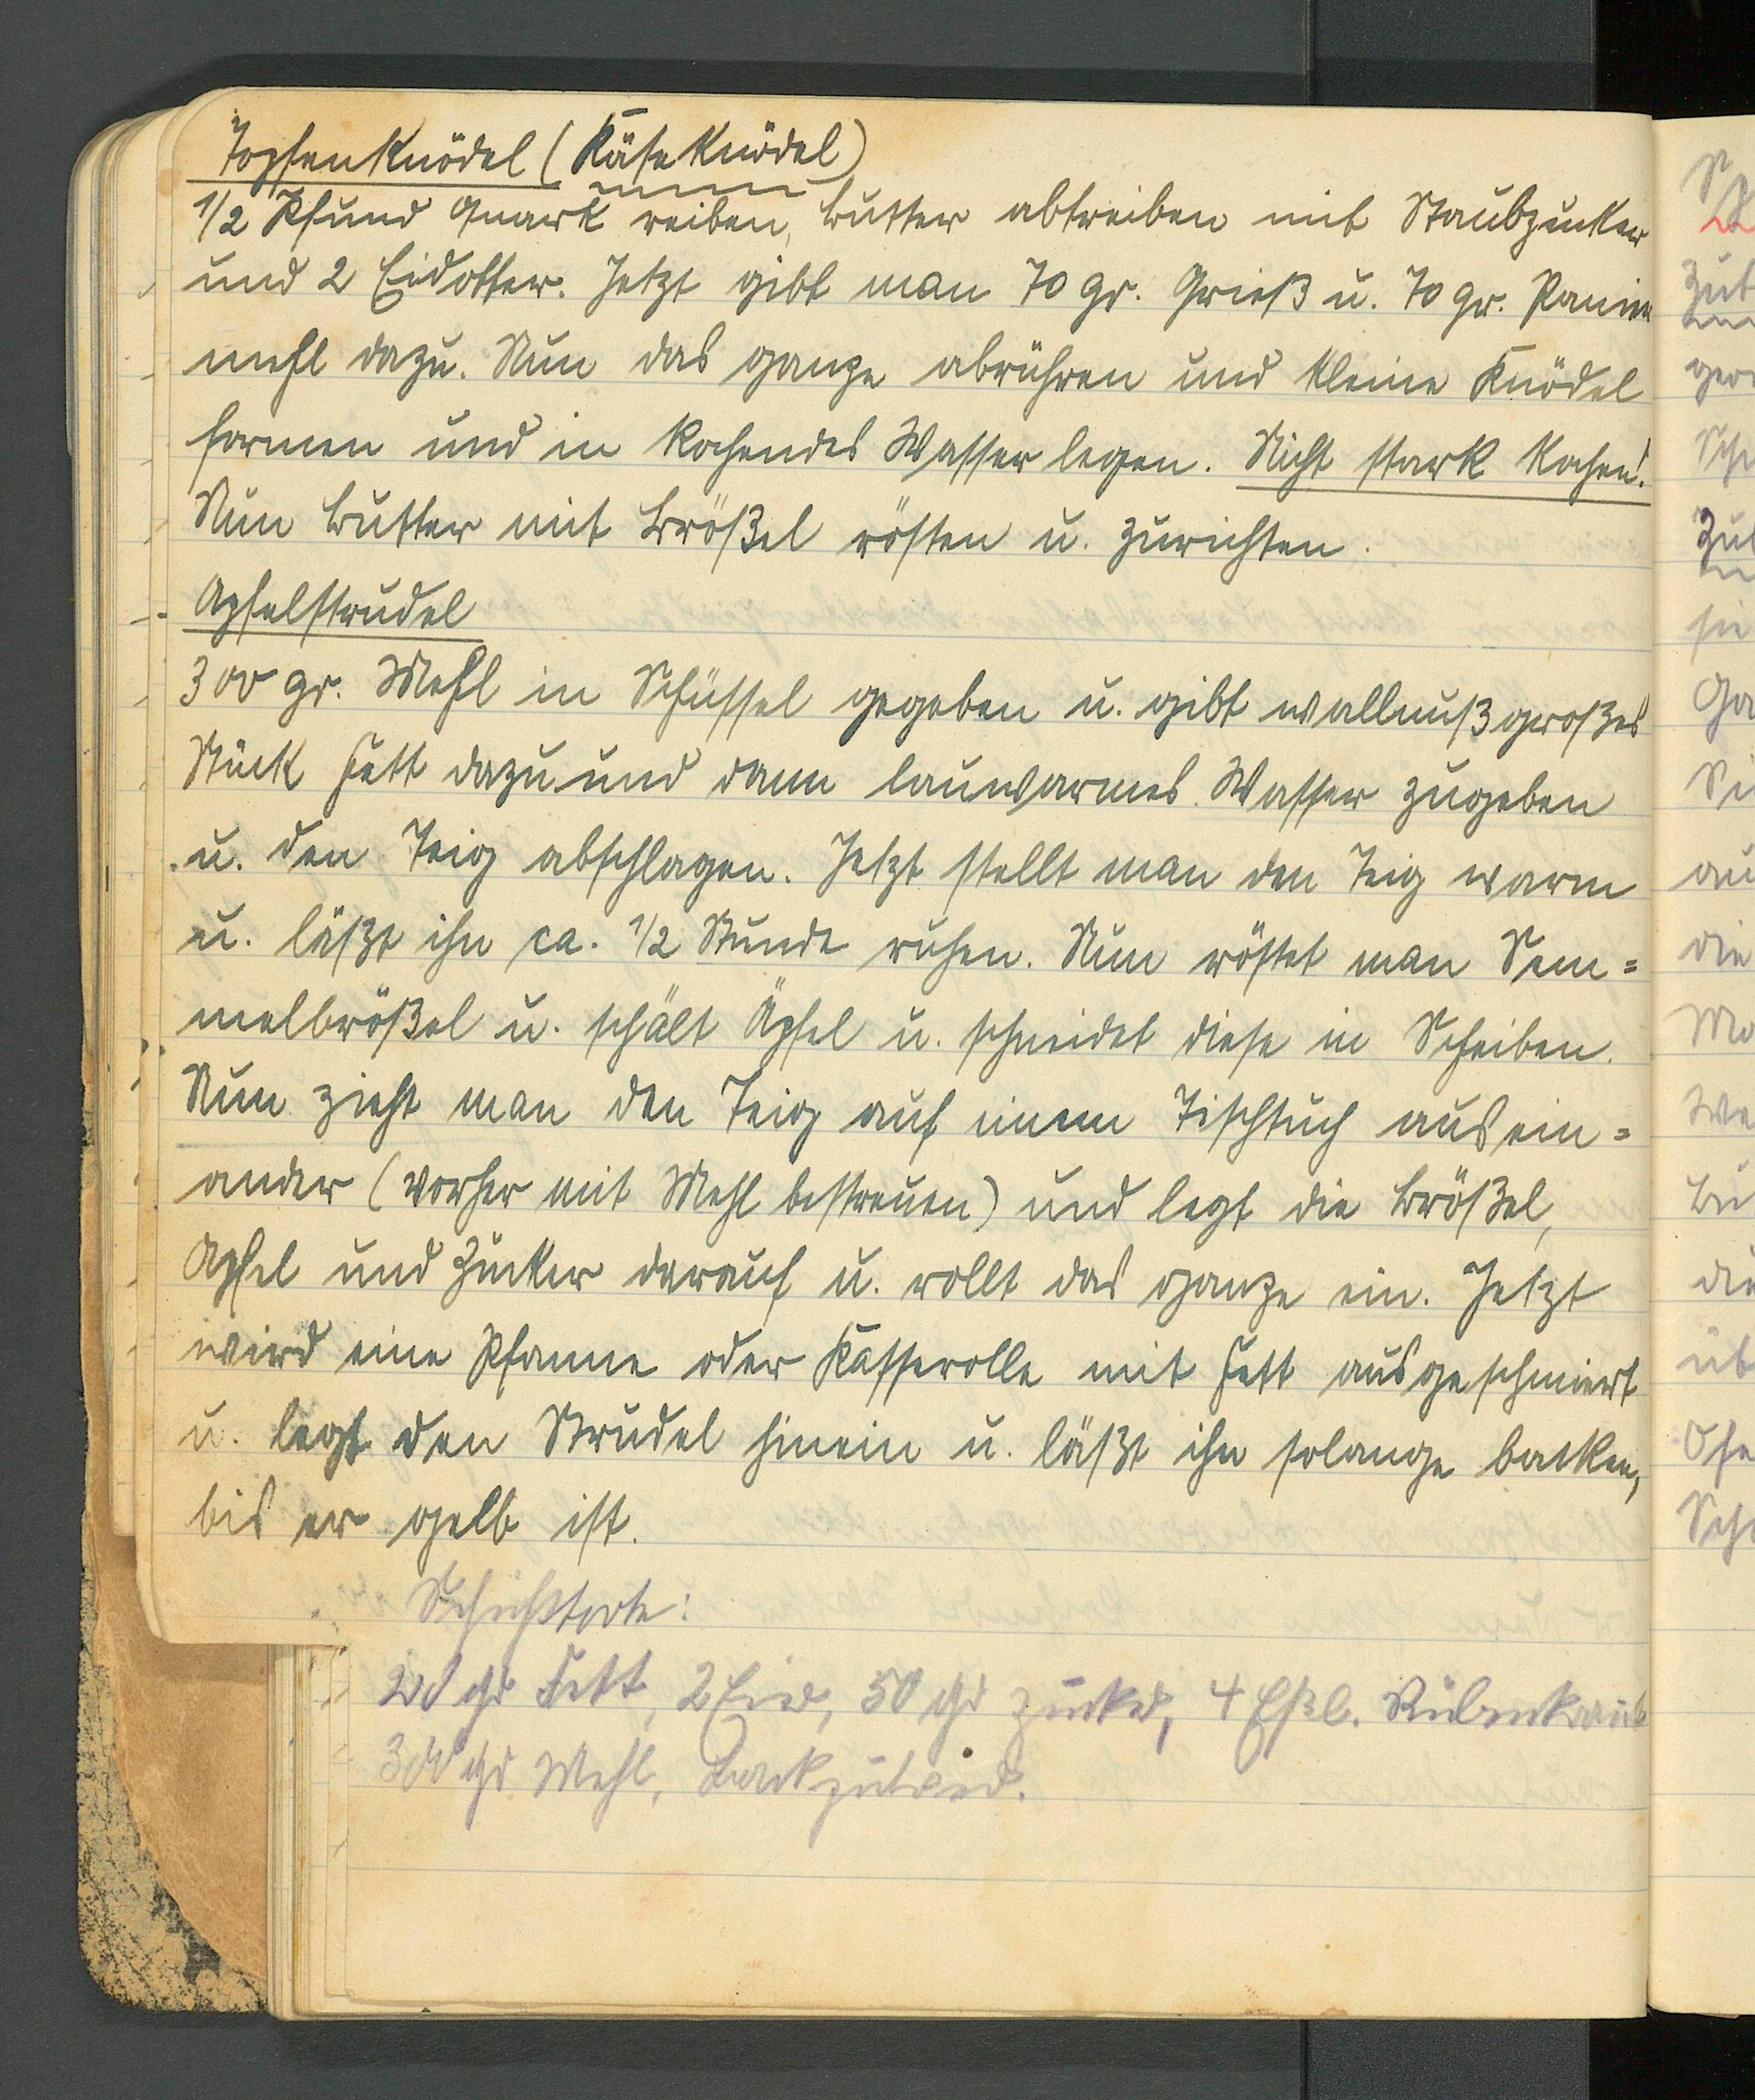 Topfenknödel (Käseknödel)
1/2 Pfund Quark reiben, Butter abtreiben mit Staubzucker
und 2 Eidotter. Jetzt gibt man 70 gr. Grieß u. 70 gr. Panier
mehl dazu. Nun das ganze abrühren und kleine Knödel
formen und in kochendes Wasser legen. Nicht stark kochen!
Nun Butter mit Brößel rösten u. zurichten.
Apfelstrudel
300 gr. Mehl in Schüssel gegeben u. gibt wallnußgroßes
Stück Fett dazu und dann lauwarmes Wasser zugeben
u. den Teig abschlagen. Jetzt stellt man den Teig warm
u. läßt ihn ca. 1/2 Stunde ruhen. Nun röstet man Sem=
melbrößel u. schält Äpfel u. schneidet diese in Scheiben.
Nun zieht man den Teig auf einem Tischtuch ausein=
ander (vorher mit Mehl bestreuen) und legt die Brößel,
Apfel und Zucker darauf u. rollt das ganze ein. Jetzt
wird eine Pfanne oder Kasserolle mit Fett ausgeschmiert
u. legt den Strudel hinein u. läßt ihn solange backen,
bis er gelb ist.
Schichttorte:
200 gr Fett, 2 Eier, 50 gr Zucker, 4 Eßl. Rübenkraut
300 gr Mehl, Backpulver.